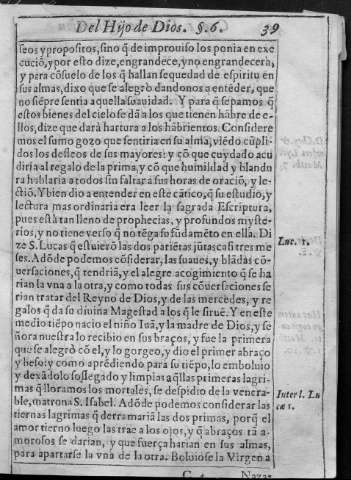 Del Hijo de Dios. §. 6. 39
seos y propositos, sino q̃ de improuiso los ponia en exe
cuciõ, y por esto dize, engrandece, y no engrandecerà,
y para cõsuelo de los q̃ hallan sequedad de espiritu en
sus almas, dixo que se alegrò dandonos a entẽder, que
no siẽpre sentia aquella suauidad. Y para q̃ sepamos q̃
estos bienes del cielo se dã a los que tienen hãbre de e-
llos, dize que darà hartura a los hãbrientos. Considere
mos el sumo gozo que sentiria en su alma, viẽdo cũpli-
dos los desseos de sus mayores: y cõ que cuydado acu
diria al regalo de la prima, y cõ que humildad y blandu
ra hablaria a todos sin faltar a sus horas de oraciõ, y le-
ctiõ. Y bien dio a entender en este cãtico, q̃ su estudio, y
lectura mas ordinaria era leer la sagrada Escriptura,
pues està tan lleno de prophecias, y profundos myste-
rios, y no tiene verso q̃ no tẽga su fũdamẽto en ella. Di
ze S. Lucas q̃ estuuierõ las dos pariẽtas jũtas casi tres me
ses. Adõde podemos cõsiderar, las suaues, y blãdas cõ-
uersaciones, q̃ tendriã, y el alegre acogimiento q̃ se ha
rian la vna a la otra, y como todas sus cõuersaciones se
rian tratar del Reyno de Dios, y de las mercedes, y re
galos q̃ da su diuina Magestad a los q̃ le siruẽ. Y en este
medio tiẽpo nacio el niño Iuã, y la madre de Dios, y se
ñora nuestra lo recibio en sus braços, y fue la primera
que se alegrò cõ el, y lo gorgeo, y dio el primer abraço
y beso: y como aprẽdiendo para su tiẽpo, lo emboluio
y dexãdolo sossegado y limpias aq̃llas primeras lagri-
mas q̃ lloramos los mortales, se despidio de la venera-
ble, matrona S. Isabel. Adõde podemos considerar las
tiernas lagrimas q̃ derramariã las dos primas, porq̃ el
amor tierno luego las trae a los ojos, y q̃ abraços tã a-
morosos se darian, y que fuerça harian en sus almas,
para apartarse la vna de la otra. Boluiose la Virgen a
Nazas
Luc. 1.
Inter l. Lu
cæ 1.